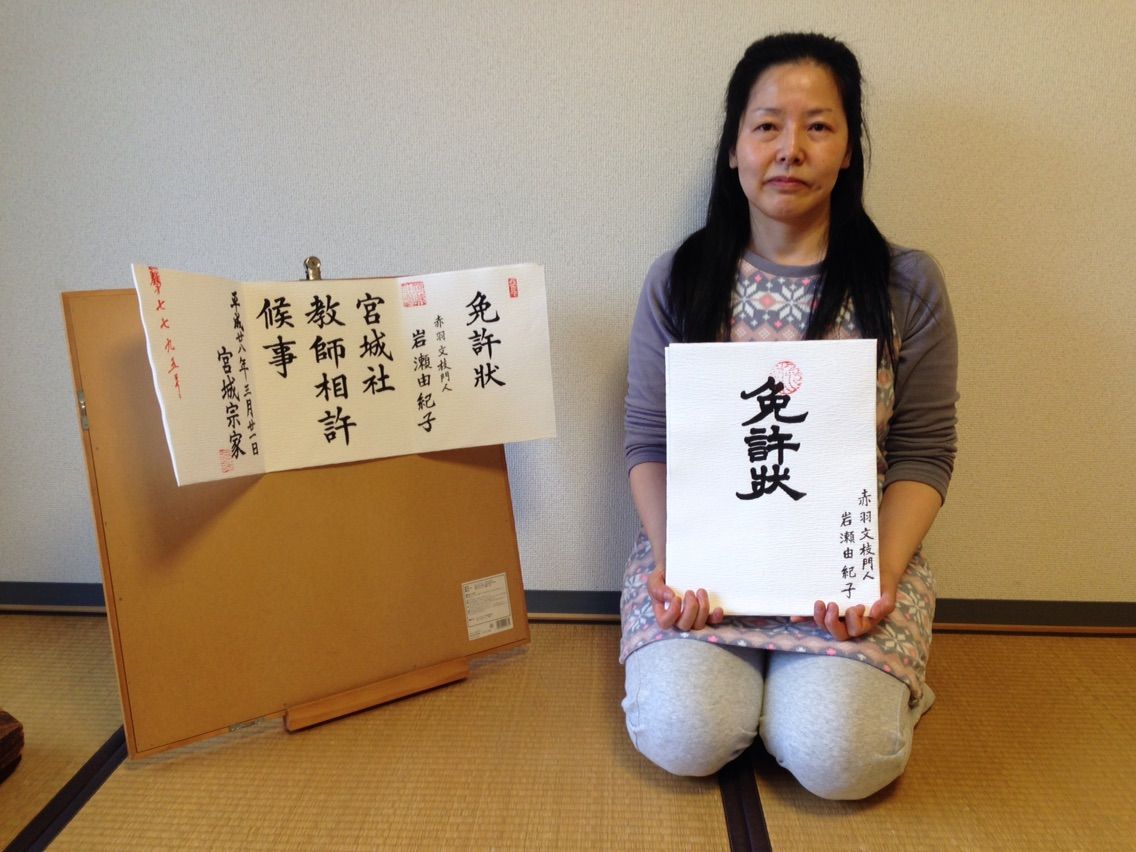 免許狀
赤羽文枝門人
岩瀬由紀子
宮城社
教師相許
候事
平成廿八年三月廿一日
宮城宗家
第七七九五号
免許狀
赤羽文枝門人
岩瀬由紀子